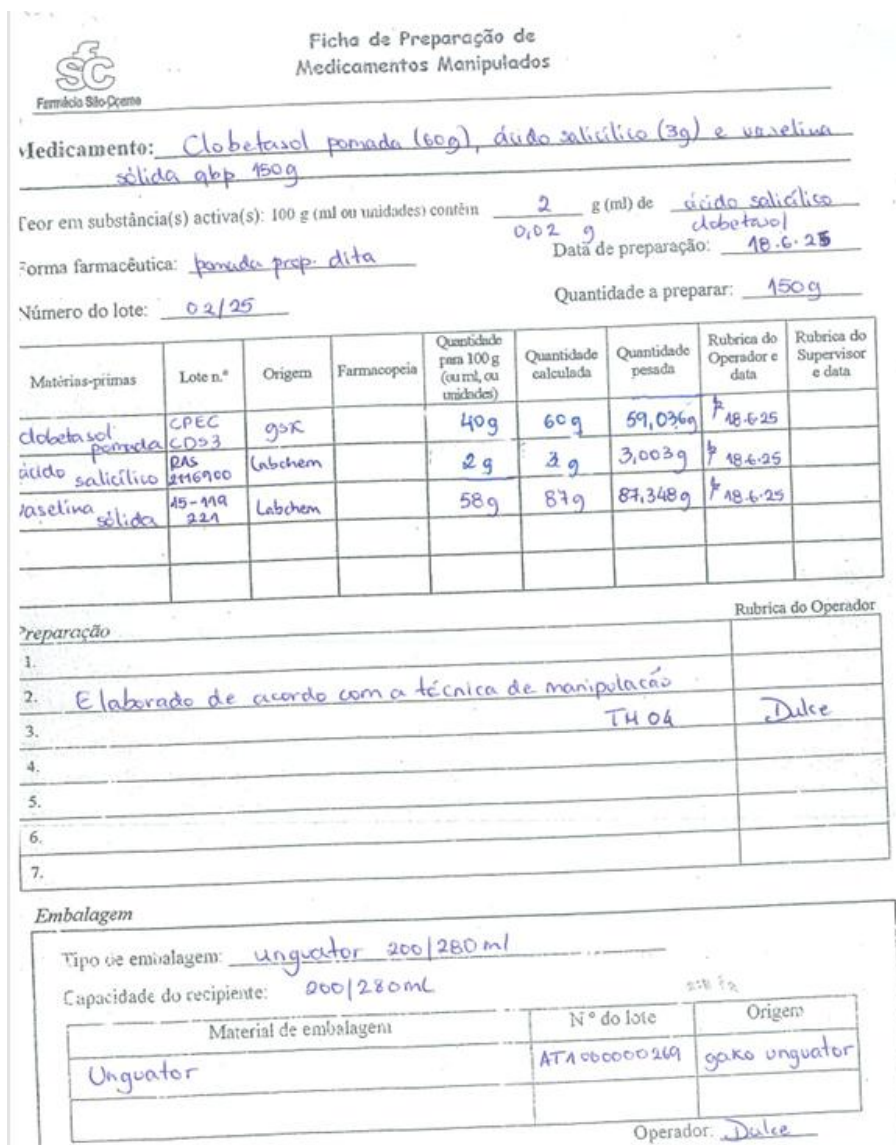 Ficha de Preparação de
Medicamentos Manipulados
fSC
Farmácia São
Medicamento: Clobetasol pomada (60g), ácido salicílico (3g) e vaselina
sólida qbp 150g
Teor em substância(s) activa(s): 100 g (ml ou unidades) contêm 2 g (ml) de ácido salicílico
0,02 g clobetasol
Forma farmacêutica: pomada prop. dita Data de preparação: 18.6.25
Número do lote: 02/25 Quantidade a preparar: 150g
Matérias-primas Lote n.º Origem Farmacopeia Quantidade para 100 g (ou ml, ou unidades) Quantidade calculada Quantidade pesada Rubrica do Operador e data Rubrica do Supervisor e data
clobetasol pomada CPEC CDS3 gsk 40g 60g 59,036g 18.6.25
ácido salicílico RAS 2116900 Labchem 2g 3g 3,003g 18.6.25
vaselina sólida 15-119 221 Labchem 58g 87g 87,348g 18.6.25
Preparação Rubrica do Operador
1.
2. Elaborado de acordo com a técnica de manipulação
3. TM 04 Dulce
4.
5.
6.
7.
Embalagem
Tipo de embalagem: unguator 200/280 ml
Capacidade do recipiente: 200/280mL
Material de embalagem N.º do lote Origem
Unguator AT1000000269 gako unguator
Operador: Dulce